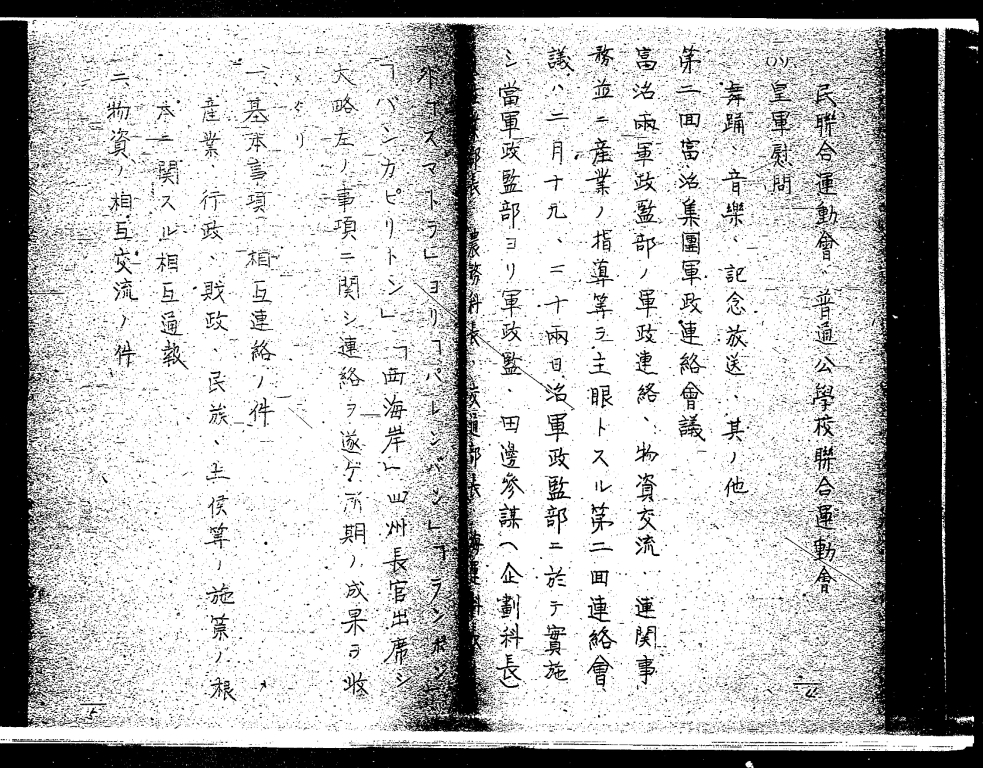 民聯合運動會、普通公學校聯合運動會
(ハ)皇軍慰問
舞踊、音樂、記念放送、其ノ他
第二回富治集團軍政連絡會議
富治兩軍政監部ノ軍政連絡、物資交流、連関事
務並ニ産業ノ指導等ヲ主眼トスル第二回連絡會
議ハ二月十九、二十兩日治軍政監部ニ於テ實施
シ當軍政監部ヨリ軍政監、田邊參謀(企劃科長)
農務科長、交通部長、海運科
外「スマトラ」ヨリ「パレンバン」「ランポン」
「バンカビリトン」「西海岸」四州長官出席シ
大略左ノ事項ニ関シ連絡ヲ遂ゲ所期ノ成果ヲ收
メタリ
一、基本事項ノ相互連絡ノ件
産業、行政、財政、民族、土侯等ノ施策ノ根
本ニ関スル相互通報
二、物資ノ相互交流ノ件
4
5